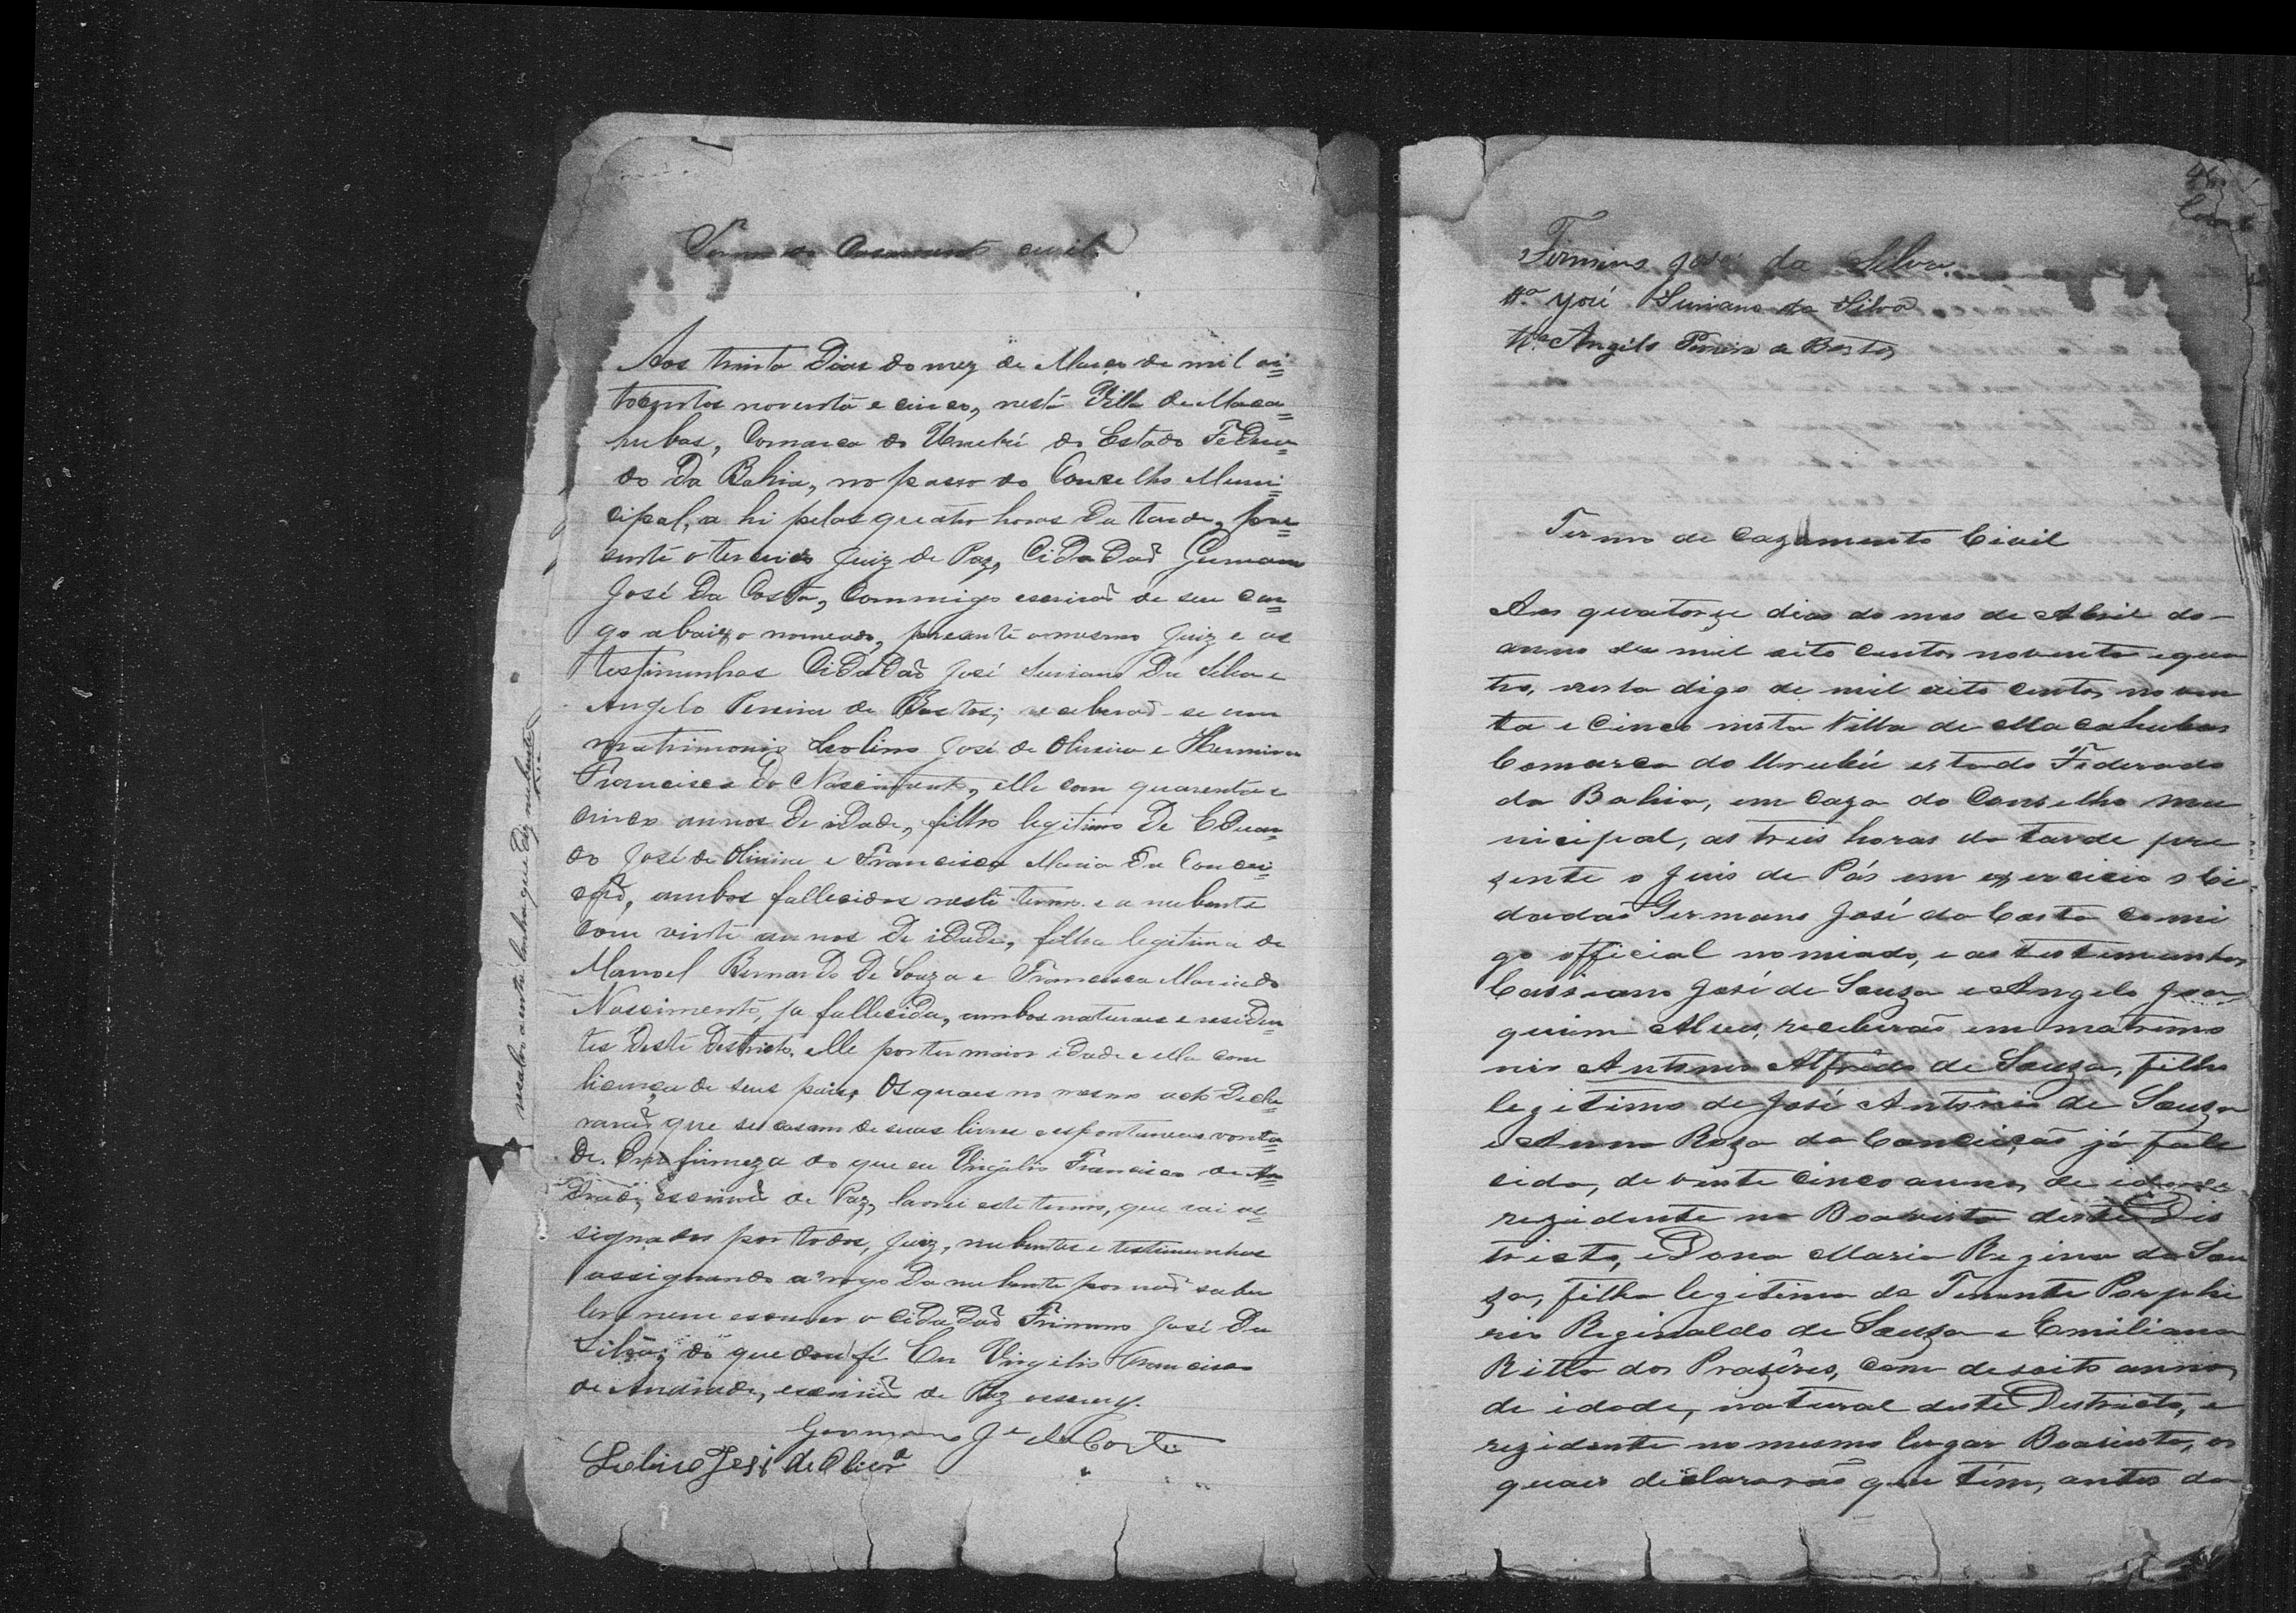 Termo de Casamento civil.
Aos trinta Dias do mez de Março de mil oi=
tocentos noventa e cinco, nesta Villa de Maca=
hubas, Comarca do Urubú do Estado Federa=
do Da Bahia, no passo do Conselho Muni=
cipal, a hi pelas quatro horas Da tarde, pre=
sente o terceiro Juiz de Paz, CiDaDaõ Germano
José Da Costa, Commigo escrivaõ de seu car=
go abaixo nomeado, presente o mesmo Juiz e as
testimunhas CiDaDaõ José Suriano Da Silva e
Angelo Pereira de Bastos; receberaõ-se em
matrimonio Leolino José de Oliveira e Hermina
Francisca Do Nascimento, elle com quarenta e
cinco annos De iDade, filho legitimo De EDuar=
do José de Oliveira e Francisca Maria Da Concei=
çaõ, ambos fallecidos neste termo e a nubente
Com vinte annos De iDaDe, filha legitima de
Manoel BernarDo De Souza e Francisca Maria do
Nascimento, ja fallecida, ambos naturaes e residen
tes deste Destricto, elle por ter maior idade e ella com
licença de seus pais, Os quaes no mesmo acto Decla=
raraõ que se casam de suas livres e espontaneas vonta=
De. Em firmeza do que eu Virgilio Francisco de An=
drade, escrivaõ de Paz, lavrei este termo, que vai as=
signados por todos, Juiz, nubentes e testimunhas
assignando a rogo Da nubente por naõ saber
ler e nem escrever o CiDaDaõ Firmino José Da
Silva; do que dou fé Eu Virgilio Francisco
de Andrade, escrivaõ de Paz escrevy.
Germano Je da Costa
Liolino Josi de Olivra
resalvo a entre linha que diz nubente
46
Firmino José da Silva
Ta José Suriano da Silva
Ta Angelo Pereira de Bastos
Termo de Cazamento Civil
Aos quatorze dias do mes de Abril do
anno de mil oito centos noventa e qua
tro, nesta digo de mil oito centos noven
ta e cinco nesta Villa de Macahubas
Comarca do Urubú estado Federado
da Bahia, em caza do Conselho mu
nicipal, as treis horas da tarde pre
zente o Juis de Pás em exercicio o Ci
dadaõ Germano José da Costa comi
go official nomiado, e as testemunhas
Cassiano José de Souza e Angelo Joa
quim Alves, receberaõ em matrimo
nio Antonio Alfrêdo de Souza, filho
legitimo de José Antonio de Souza
e Anna Roza da Conceiçaõ já fale
cida, de vinte cinco annos de idade
rezidente na Boavista deste Dis
tricto, e Dona Maria Regina de Sou
za, filha legitima do Tenente Porphi
rio Reginaldo de Souza e Emiliana
Ritta dos Prazêres, com desoito annos
de idade, natural deste Destricto, e
rezidente no mesmo lugar Boavista, os
quaes declararaõ que têm, antes do